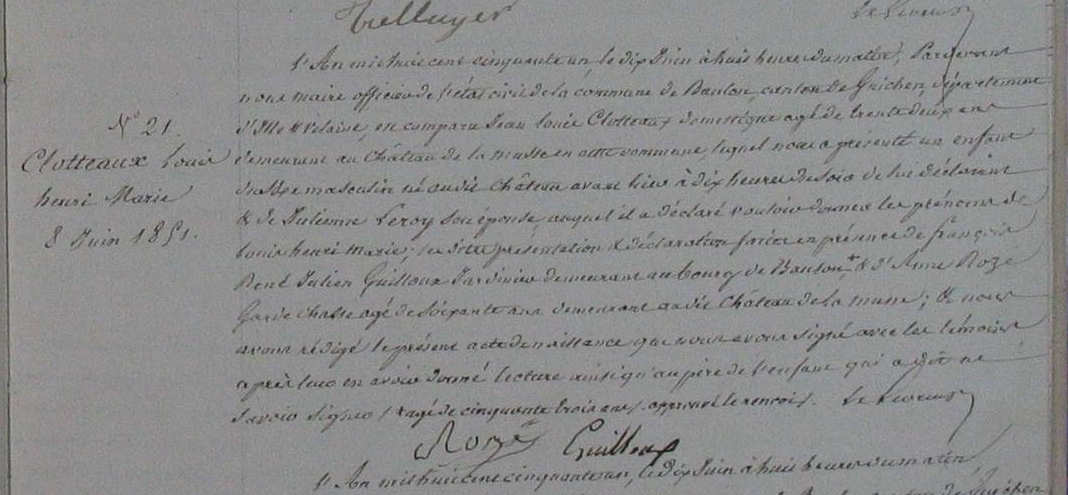 Telluyer
Le Lieureux
L'An mil huit cent cinquante un, le dix Juin à huit heures du matin, Par devant
nous maire officier de l'état civil de la commune de Baulon, canton de Guichen, département
d'Ille & Vilaine, en comparu Jean Louis Clotteaux domestique agé de trente deux ans
N° 21.
Clotteaux Louis
henri Marie
8 Juin 1851.
demeurant au Château de la musse en cette commune, lequel nous a présenté un enfant
du sexe masculin né audit Château avant hier à dix heures du soir de lui déclarant
& de Julienne Leroy son épouse, auquel il a déclaré vouloir donner les prénoms de
Louis henri Marie; les dites présentation & déclaration faites en présence de françois
René Julien Guilloux Jardinier demeurant au bourg de Baulon, + & d'Anne Rozé
Garde Chasse agé de soixante ans demeurant audit Château de la musse; & nous
avons rédigé le présent acte de naissance que nous avons signé avec les témoins
après leur en avoir donné lecture ainsi qu'au père de l'enfant qui a dit ne
savoir signer + agé de cinquante trois ans, approuvé le renvoi.
Rozé Guilloux
L'An mil huit cent cinquante un, le dix Juin à huit heures du matin